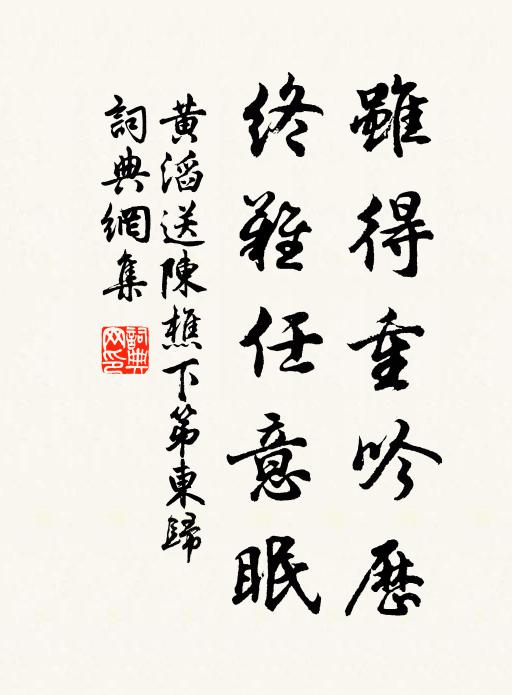 雖得重吟歷
終難任意眠
黃滔送陳樵下第東歸
詞典網集
詞典網印